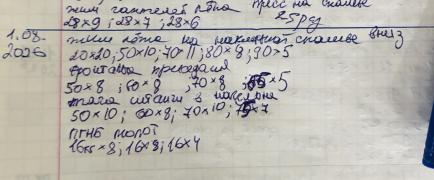 жим гантелей лёжа пресс на скамье
28×9; 28×7; 28×6 25 раз
1.08. жим лёжа на наклонной скамье вниз
2026 20×20; 50×10; 70×11; 80×8; 90×5
фронтальн приседания
50×8 ; 60×8 ; 70×8 ; ×5
тяга штанги в наклоне
50×10; 60×8; 70×10; 75×7
молот
16кг×8; 16×8; 16×4